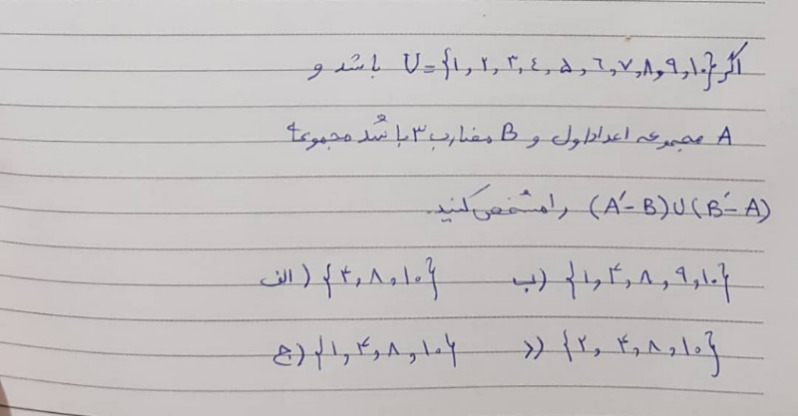 اگر U={۱,۲,۳,٤,۵,٦,۷,۸,۹,۱۰} باشد و
A مجموعه اعداد اول و B مضارب ۳ باشد مجموعهٔ
(A′-B)∪(B′-A) را مشخص کنید.
الف) {۴,۸,۱۰} ب) {۱,۴,۸,۹,۱۰}
ج) {۱,۴,۸,۱۰} د) {۲,۴,۸,۱۰}